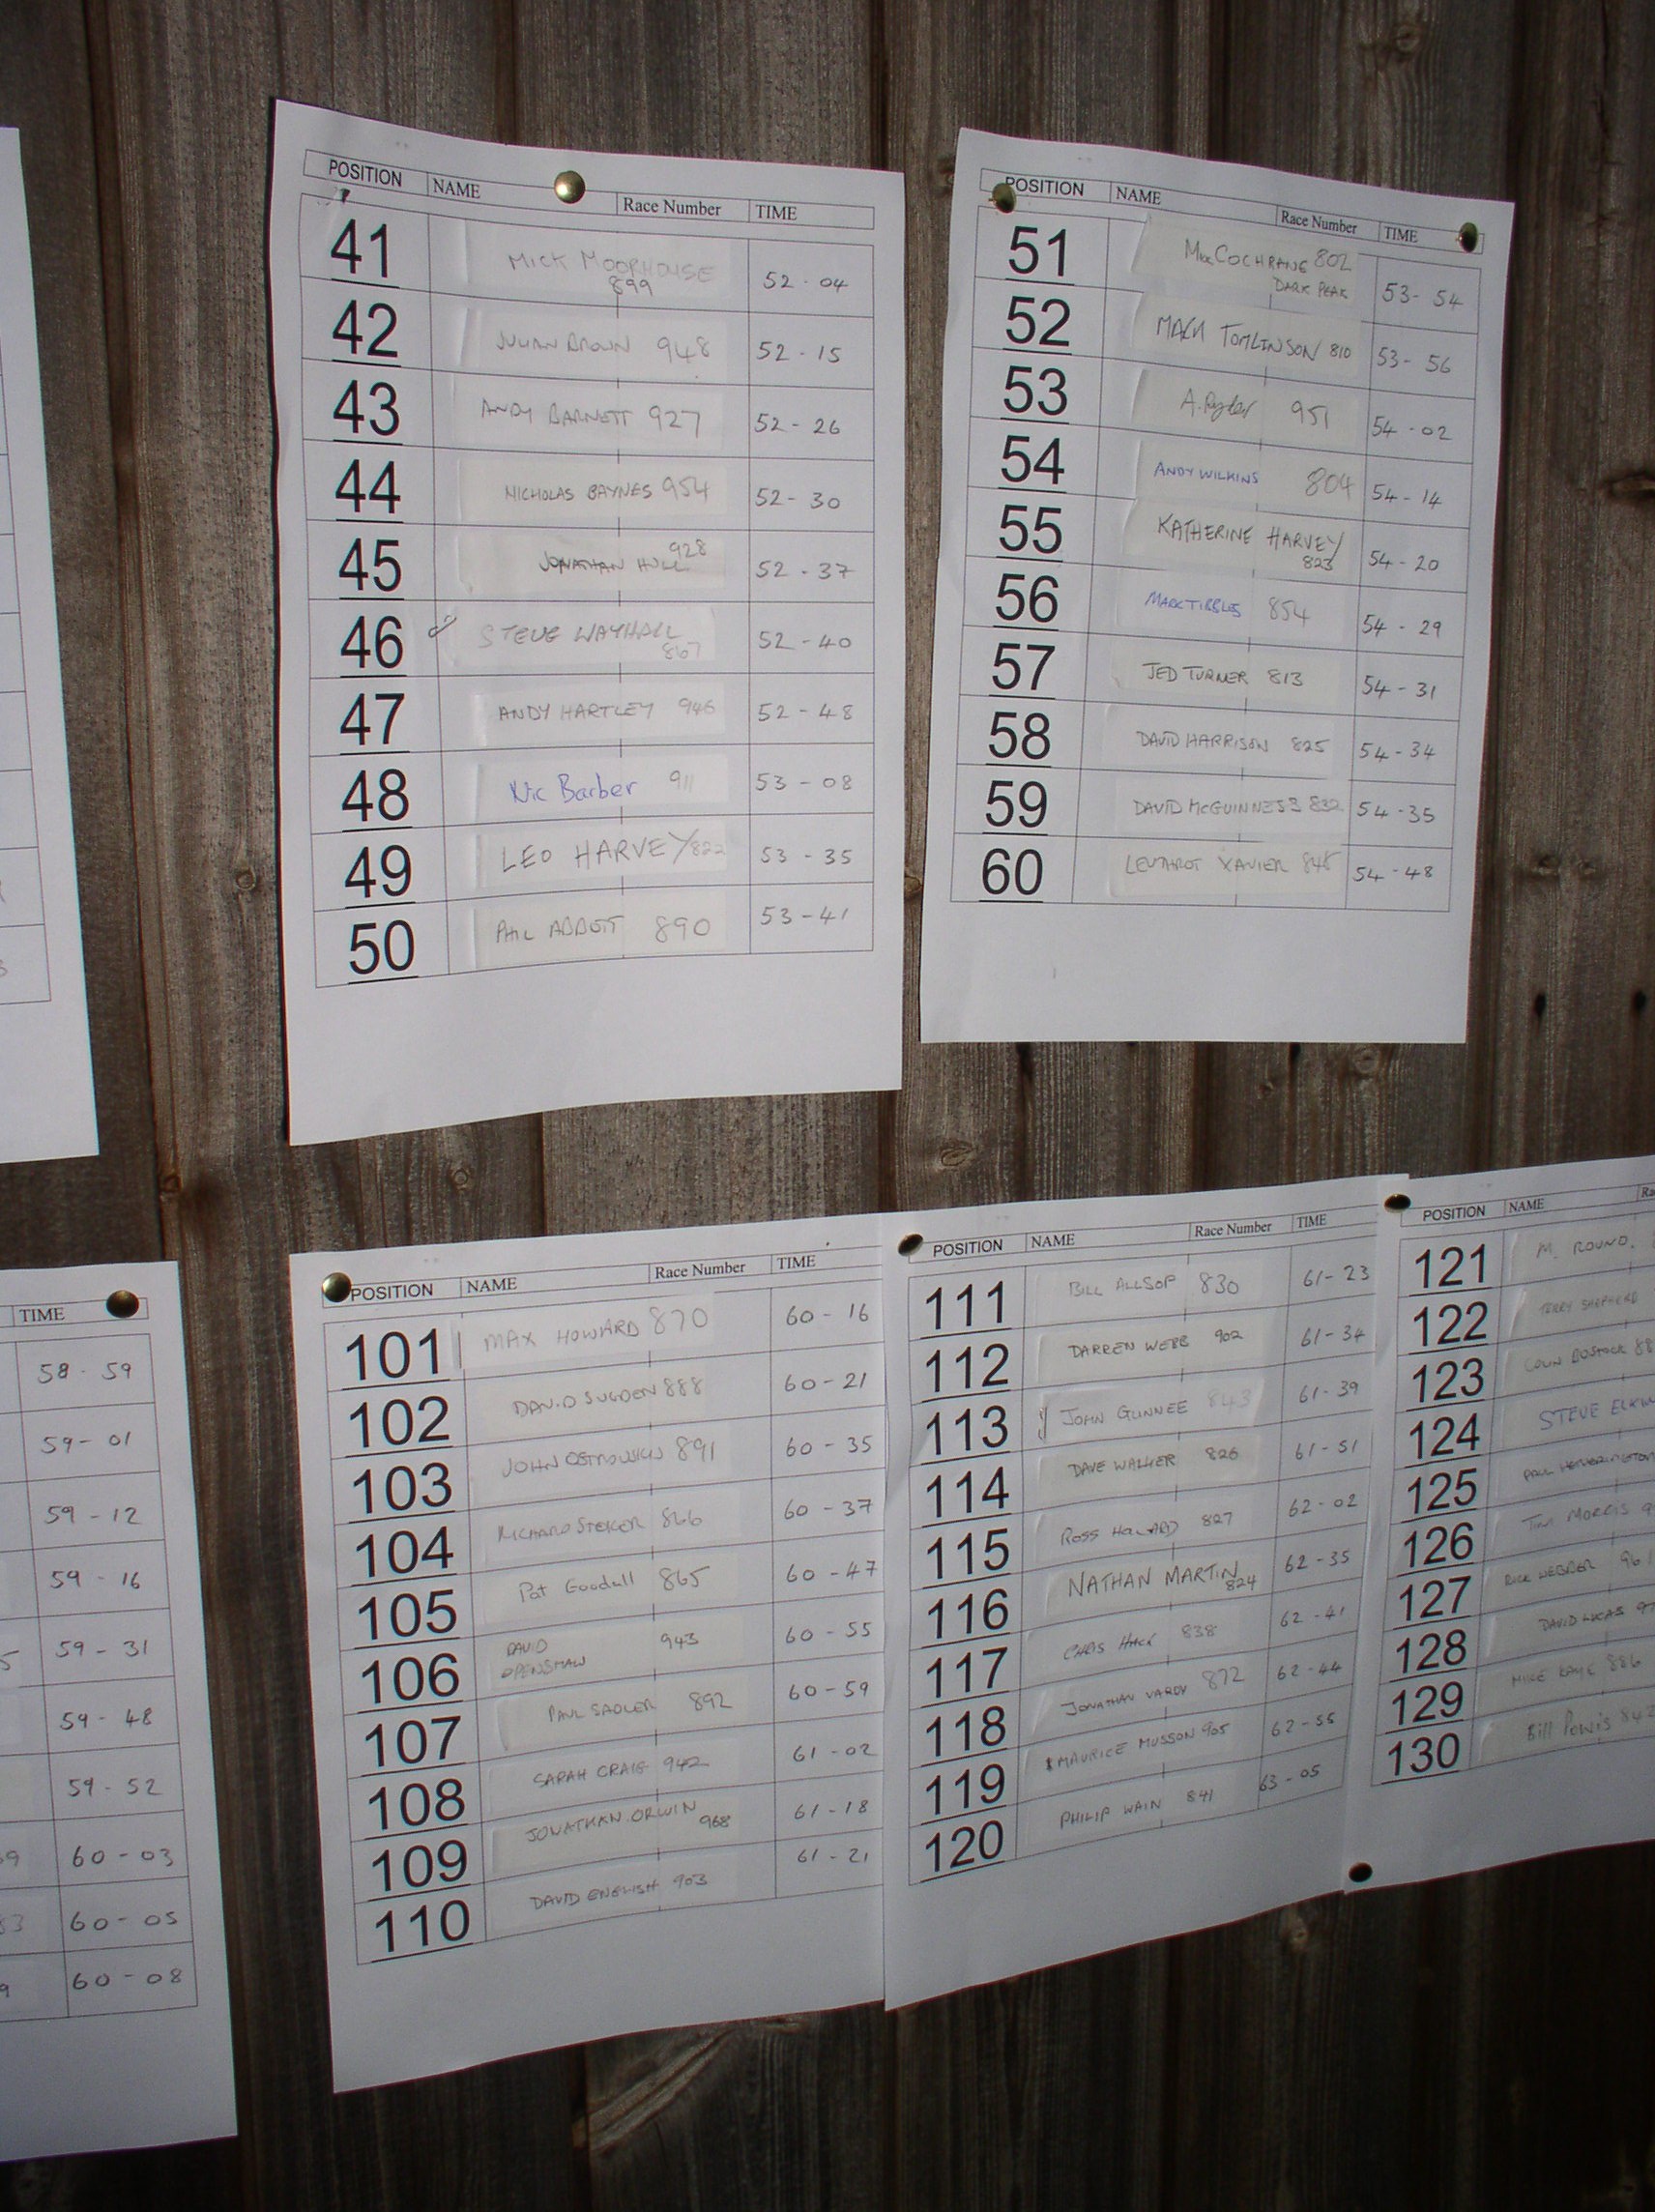 POSITION NAME Race Number TIME
41 MICK MOORHOUSE 899 52-04
42 JULIAN BROWN 948 52-15
43 ANDY BARNETT 927 52-26
44 NICHOLAS BAYNES 954 52-30
45 JONATHAN HULL 928 52-37
46 STEVE 867 52-40
47 ANDY HARTLEY 946 52-48
48 Nic Barber 911 53-08
49 LEO HARVEY 822 53-35
50 PHIL ABBOTT 890 53-41
POSITION NAME Race Number TIME
51 COCHRANE 802 DARK PEAK 53-54
52 TOMLINSON 810 53-56
53 A. 951 54-02
54 ANDY WILKINS 804 54-14
55 KATHERINE HARVEY 823 54-20
56 MARK TIBBLES 854 54-29
57 JED TURNER 813 54-31
58 DAVID HARRISON 825 54-34
59 DAVID McGUINNESS 832 54-35
60 XAVIER 54-48
TIME
58-59
59-01
59-12
59-16
59-31
59-48
59-52
60-03
60-05
60-08
POSITION NAME Race Number TIME
101 MAX HOWARD 870 60-16
102 DAVID SUGDEN 888 60-21
103 JOHN 891 60-35
104 RICHARD 866 60-37
105 Pat Goodall 865 60-47
106 DAVID OPENSHAW 943 60-55
107 PAUL SADLER 892 60-59
108 SARAH CRAIG 942 61-02
109 JONATHAN ORWIN 968 61-18
110 DAVID ENGLISH 903 61-21
POSITION NAME Race Number TIME
111 BILL ALLSOP 830 61-23
112 DARREN WEBB 902 61-34
113 JOHN GUNNEE 843 61-39
114 DAVE WALKER 826 61-51
115 ROSS HOWARD 827 62-02
116 NATHAN MARTIN 824 62-35
117 CHRIS 838 62-41
118 JONATHAN VARDY 872 62-44
119 MAURICE MUSSON 905 62-55
120 PHILIP WAIN 841 63-05
POSITION NAME
121 M. ROUND.
122 TERRY SHEPHERD
123 COLIN BOSTOCK
124 STEVE
125 PAUL HETHERINGTON
126 TIM MORRIS
127 RICK WEBBER 961
128 DAVID LUCAS
129 MIKE KAYE 886
130 Bill Powis 842